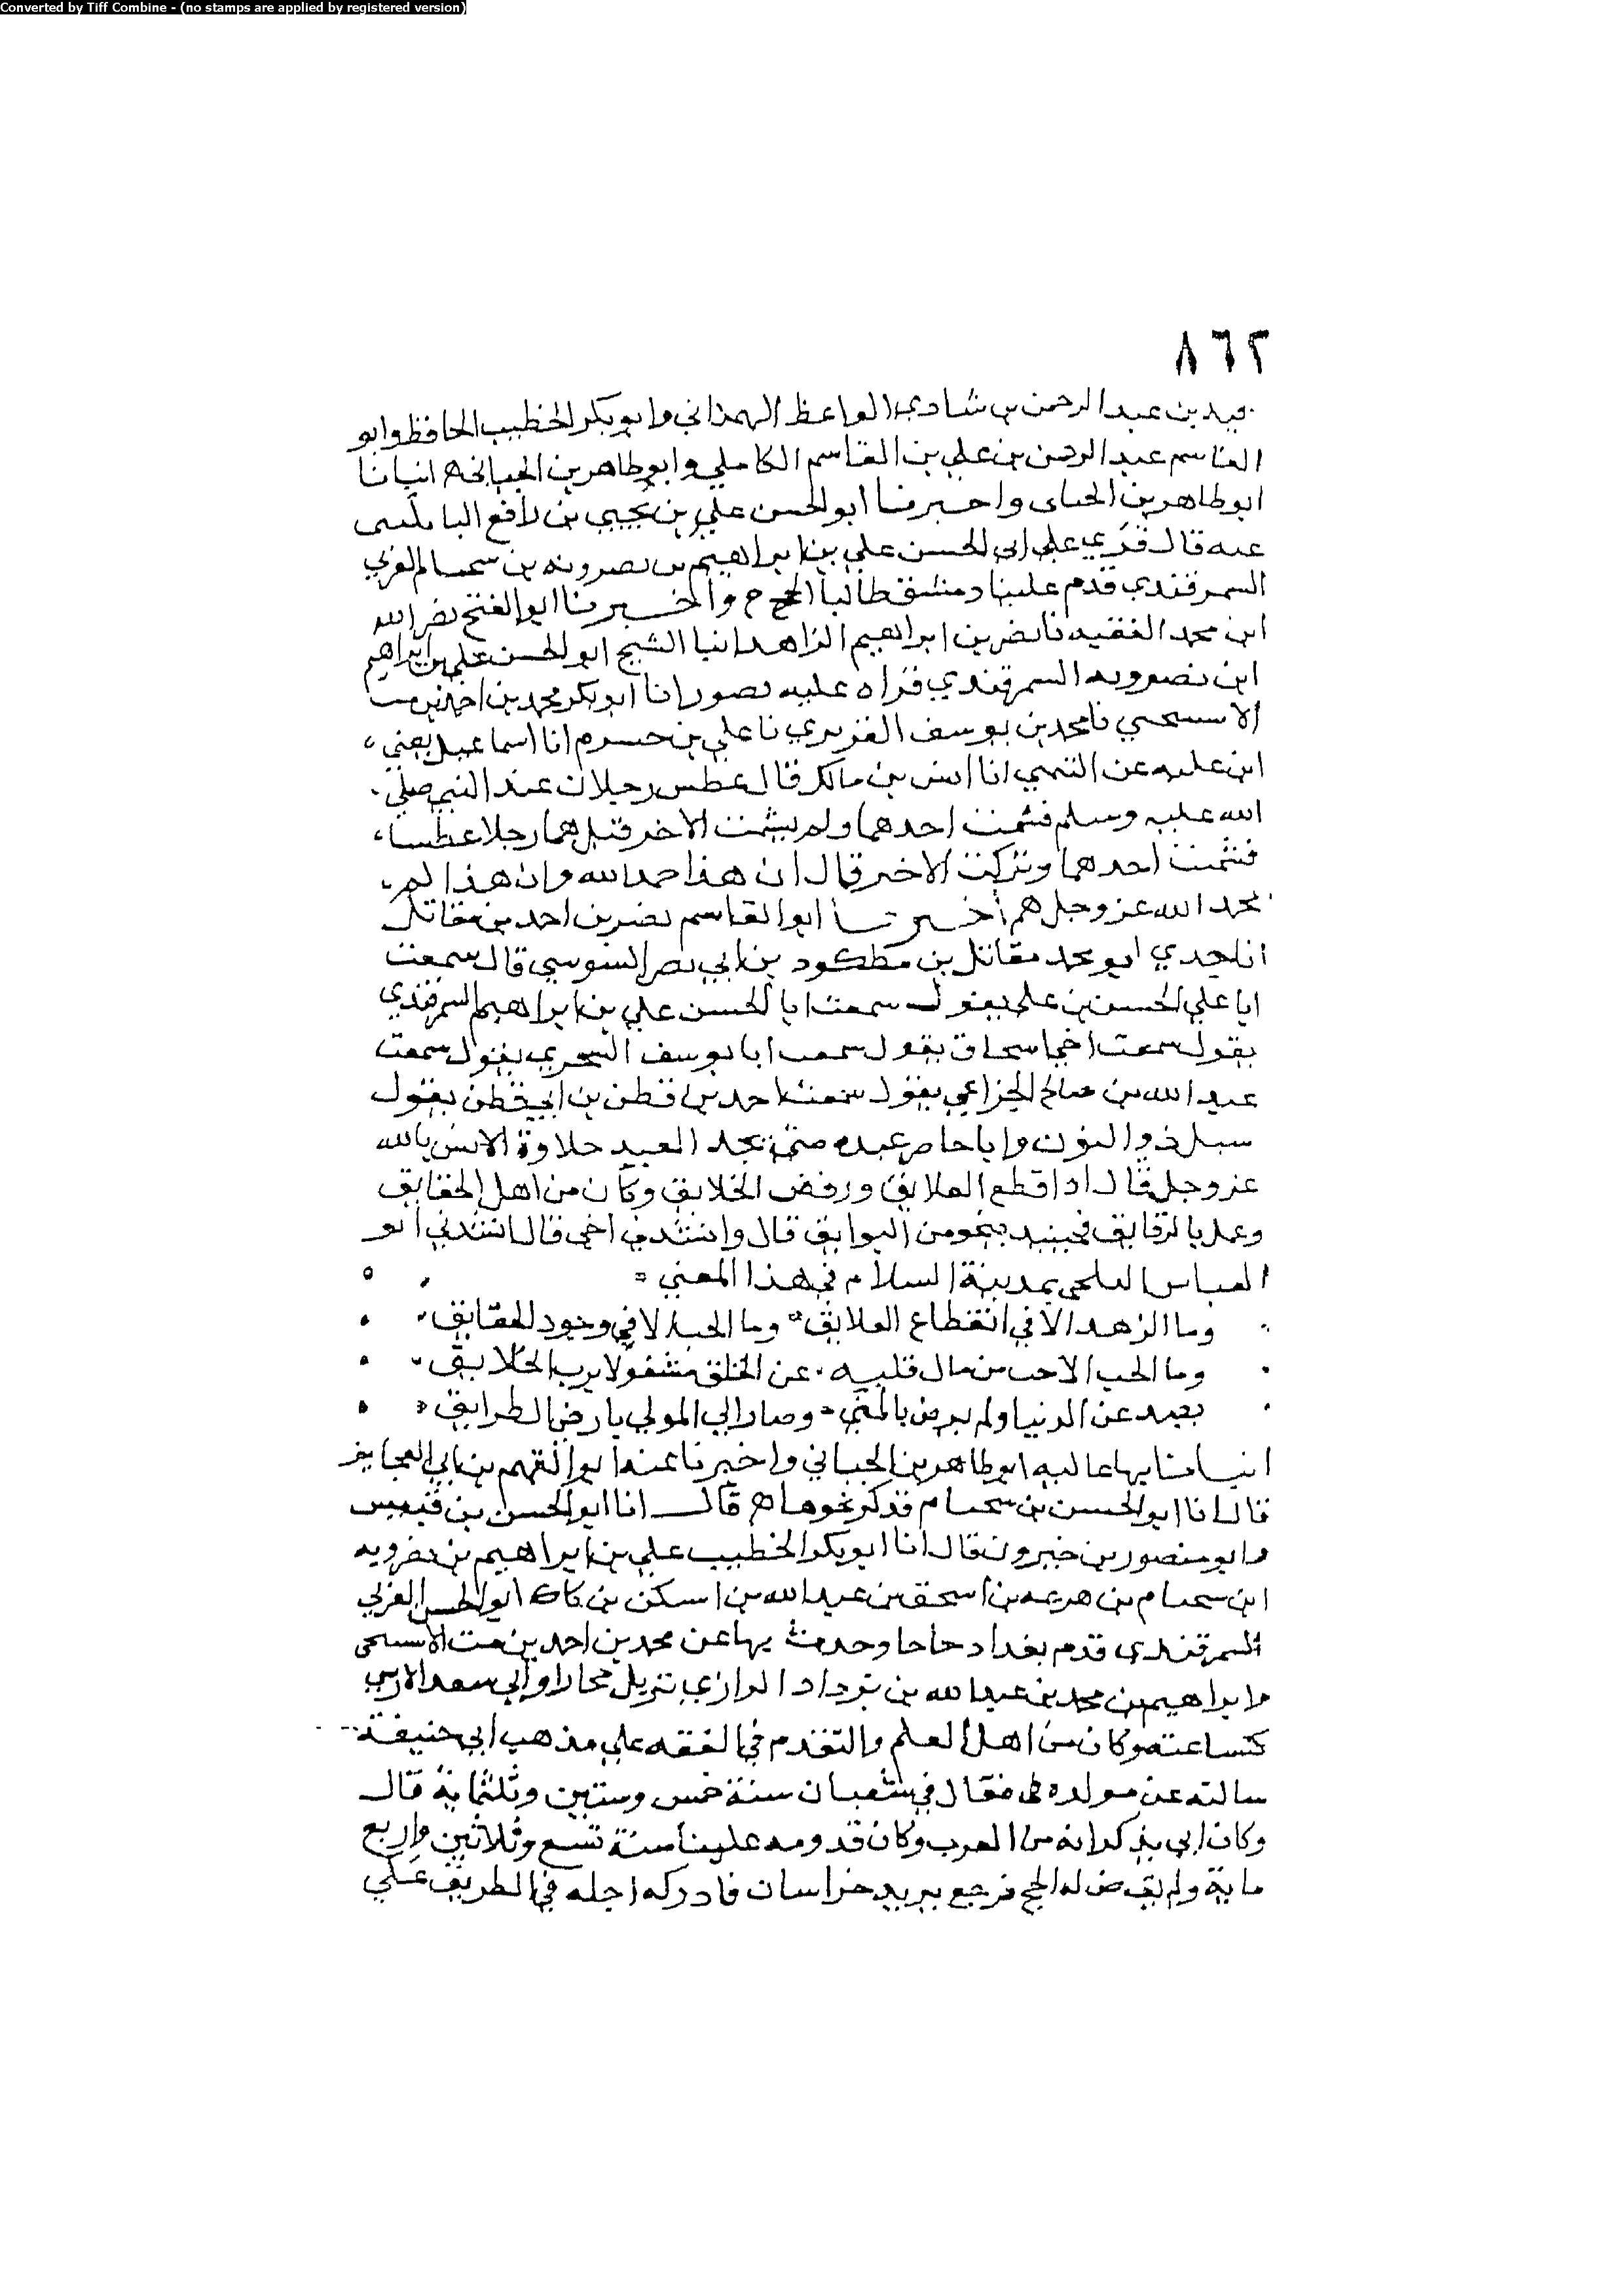 Converted by Tiff Combine - (no stamps are applied by registered version)
٨٦٢
عبد الرحمن بن شادي الواعظ الهمذاني وابو بكر الخطيب الحافظ وابو
القاسم عبد الرحمن بن علي بن القاسم الكاملي وابو طاهر بن الحبائي انبانا
ابو طاهر بن الحنائي واخبرنا ابو الحسن علي بن يحيي بن رافع النابلسي
عنه قال قري علي ابي الحسن علي بن ابراهيم بن نصرويه بن سحسام الغربي
السمرقندي قدم علينا دمشق طالبا الحج ح واخبرنا ابو الفتح نصر الله
ابن محمد الفقيه نا نصر بن ابراهيم الزاهد انبا الشيخ ابو الحسن علي بن ابراهيم
ابن نصرويه السمرقندي قراه عليه بصور انا ابو بكر محمد بن احمد بن مت
الاستىحىى نا محمد بن يوسف الفربري نا علي بن خشرم انا اسماعيل يعني
ابن عليه عن التيمي انا انس بن مالك قال عطس رجلان عند النبي صلي
الله عليه وسلم فشمت احدهما ولم يشمت الاخر فقيل هما رجلا عطسا
فشمت احدهما وتركت الاخر قال ان هذا حمد الله وان هذا لم
يحمد الله عز وجل هم أخبرنا ابو القاسم نصر بن احمد بن مقاتل
انا جدي ابو محمد مقاتل بن مطكود بن ابي نصر السوسي قال سمعت
ابا علي الحسن بن علي يقول سمعت ابا الحسن علي بن ابراهيم السمرقندي
يقول سمعت اخي اسحاق يقول سمعت ابا يوسف السجري يقول سمعت
عبد الله بن صالح الخزاعي يقول سمعت احمد بن قطن بن ابي قطن يقول
سيل ذو النون وانا حاضر عنده متي يجد العبد حلاوة الانس بالله
عز وجل قال اذا قطع العلايق ورفض الخلايق وكان من اهل الحقايق
وعمل بالرقايق فحينيذ ينجو من البوايق قال وانشدني اخي قال انشدني ابو
العباس بمدينة السلام في هذا المعني
وما الزهد الا في انقطاع العلايق وما الحب الا في وجود الحقايق
وما الحب الا حب من مال قلبه عن الخلق مشغولا برب الخلايق
بعيد عن الدنيا ولم يرض بالمني وصار الي المولي بارض الطرايق
انبانا بها عاليه ابو طاهر بن الحنائي واخبرنا عنه ابو الفهم بن ابي العجايز
قال انا ابو الحسن بن سحسام فذكر نحوها هم قال انا ابو الحسن بن قبيس
وابو منصور بن خيرون قال انا ابو بكر الخطيب علي بن ابراهيم بن نصرويه
ابن سحسام بن هرثمه بن اسحق بن عبد الله بن اسكن بن كاك ابو الحسن الغربي
السمرقندي قدم بغداد حاجا وحدث بها عن محمد بن احمد بن مت الاستىحى
وابراهيم بن محمد بن عبد الله بن يزداد الرازي نزيل بخارا وابي سعد الادريسي
كتبنا عنه وكان من اهل العلم والتقدم في الفقه علي مذهب ابي حنيفة
سالته عن مولده فقال في شعبان سنة خمس وستين وثلثماية قال
وكان ابي يذكر انه من العرب وكان قدومه علينا سنة تسع وثلاثين واربع
ماية ولم يقض له الحج فرجع يريد خراسان فادركه اجله في الطريق علي